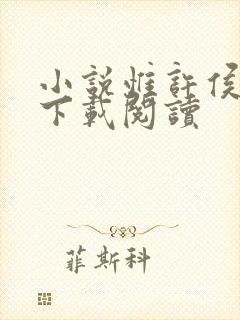 小說惟許侯
下載閱讀
菲斯科